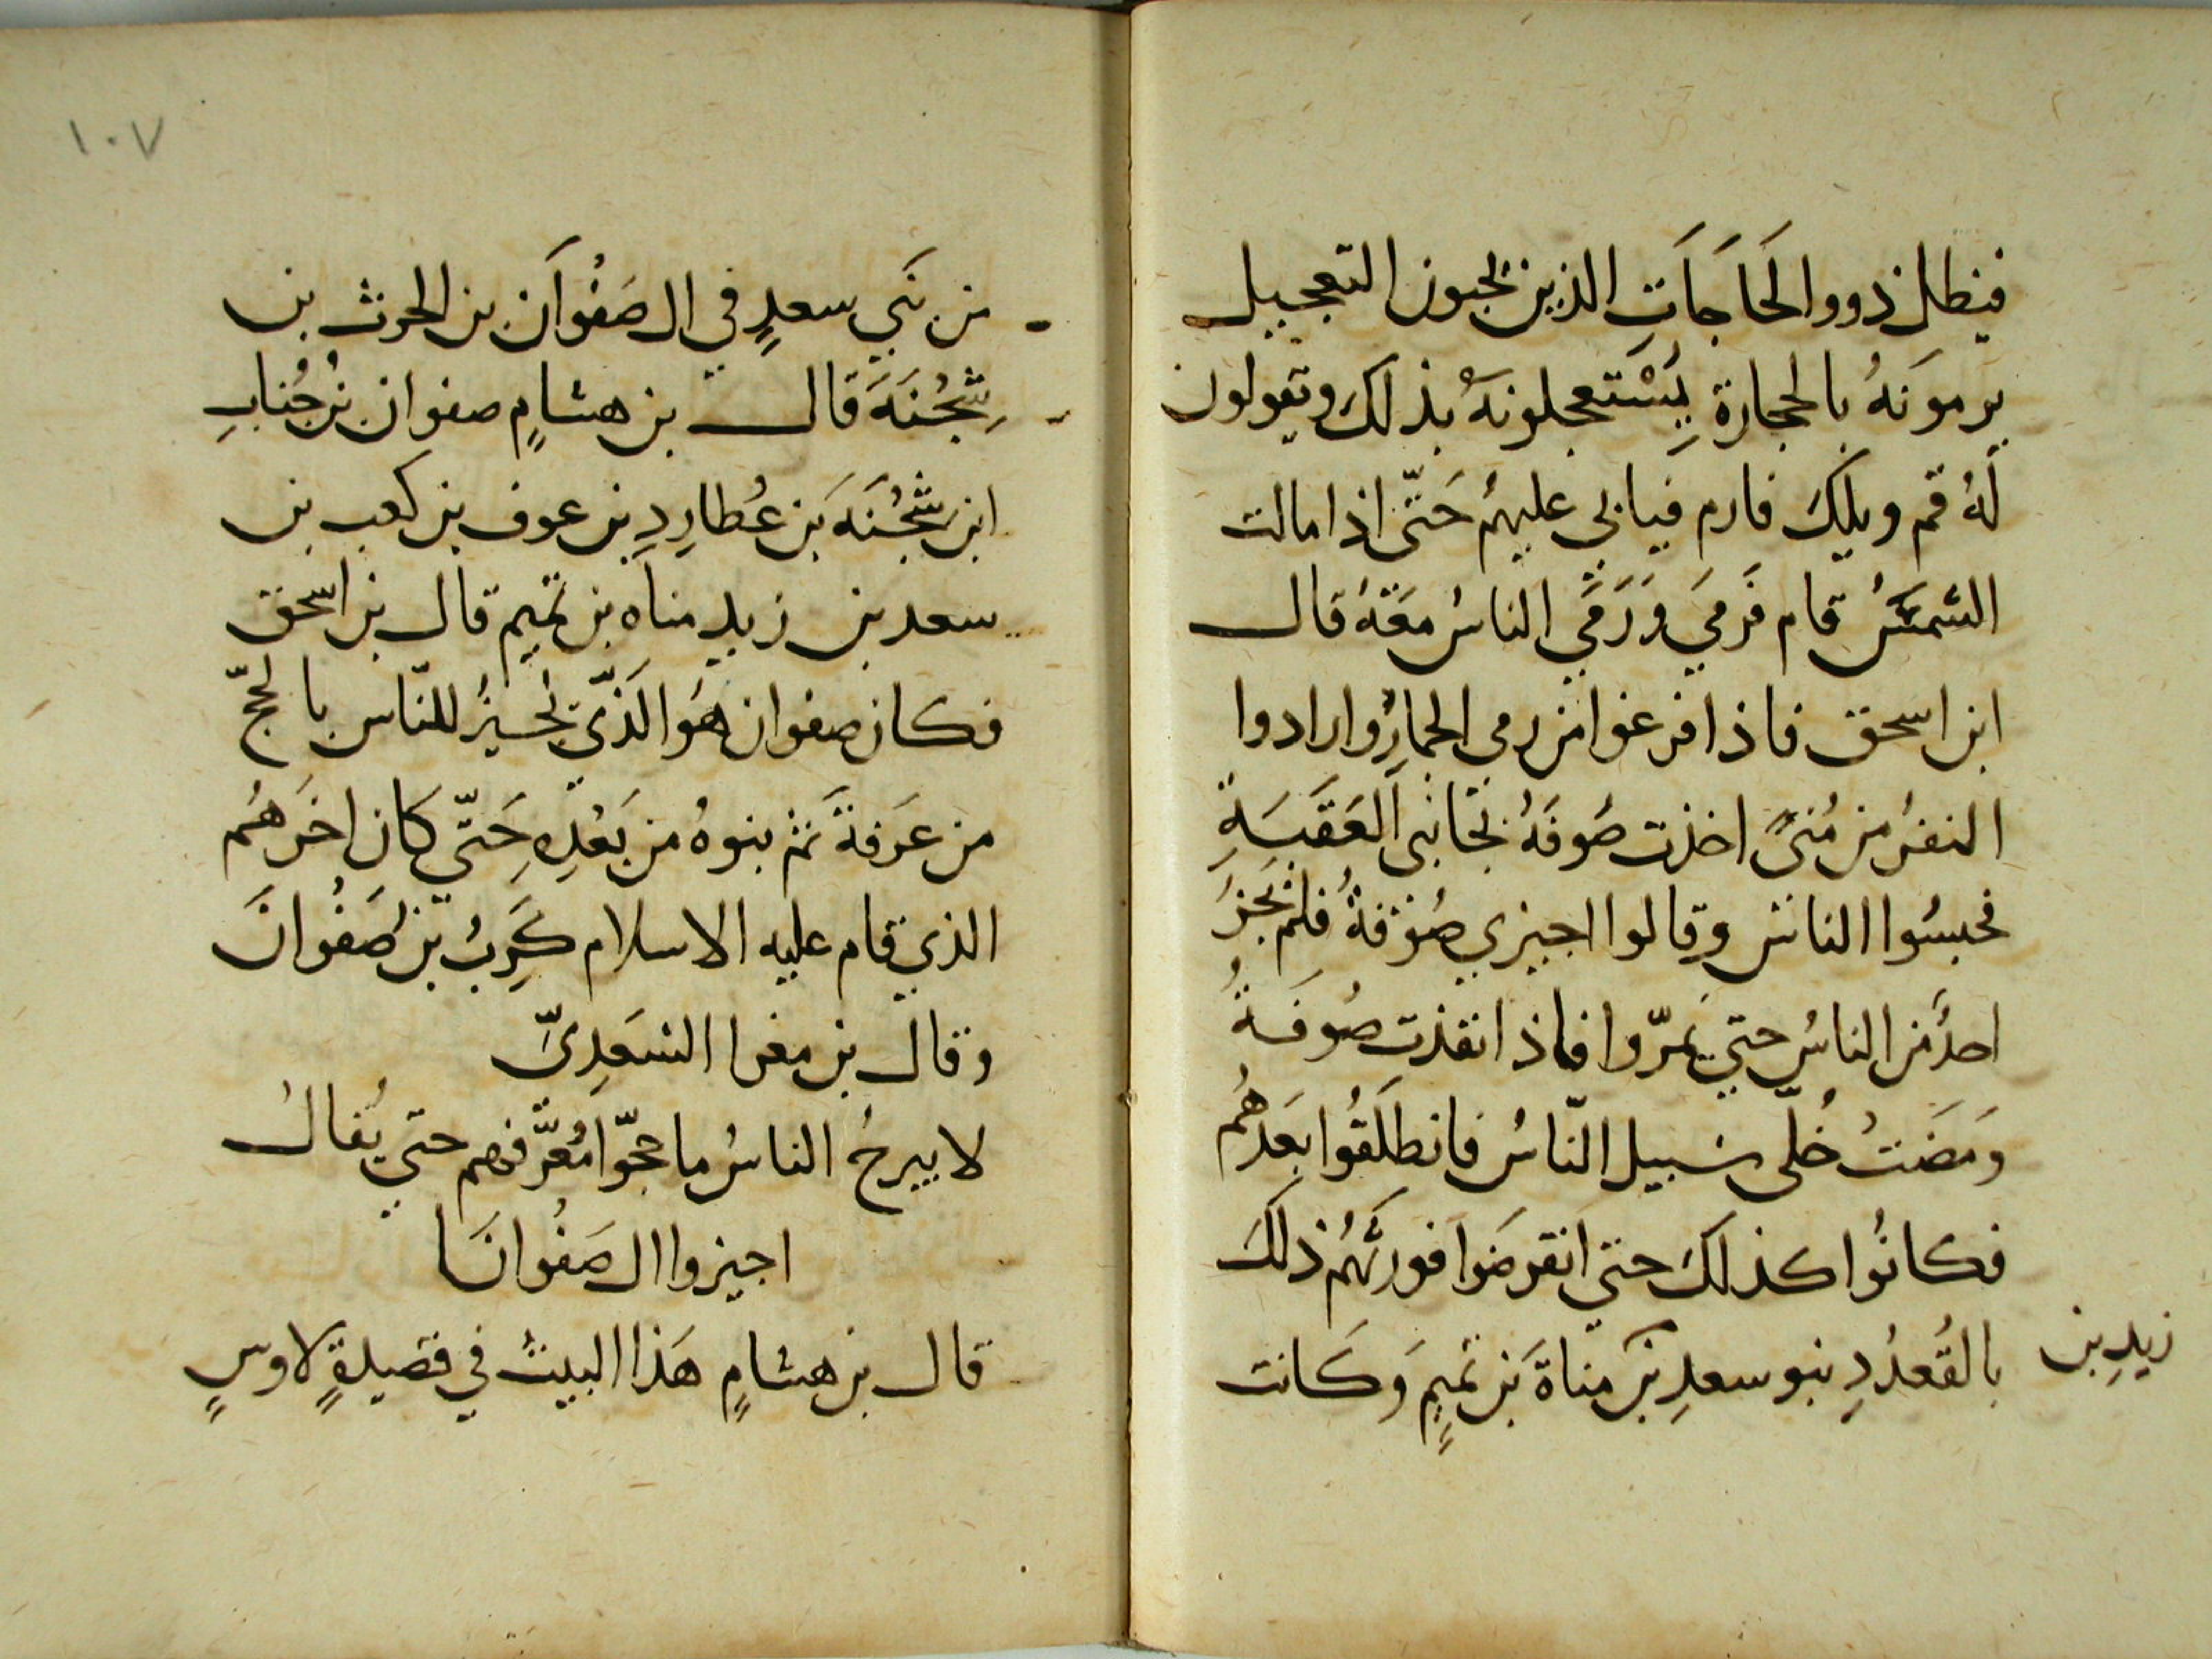 فيظل ذووا لحَاجَاتِ الذين يحبون التعجيل
يرمونَهُ بالحجارة يَسْتعجلونهُ بذلكَ ويقولون
لَهُ قم ويلكَ فارم فيابي عليهم حَتّى اذا مالت
الشمسُ قام فَرَميَ وَرَمَي الناسُ مَعَهُ قال
ابن اسحق فاذا فرغوا من رمى الجمارِ وارادوا
النفرُ من مُنىً اخذت صُوفَهُ بجانبى العَقَبَةِ
فحبسُوا الناسَ وقالوا اجيزي صُوْفةُ فلم يَجُز
احدٌ من الناسِ حتي يَمرّوا فاذا نفذت صُوفَةُ
وَمَضَتْ خُلّى سَبيل النّاسُ فانطلَقُوا بعَدهُم
فكانُوا كذلكَ حتي انقرضَوا فورثَهُم ذلكَ
بالقُعدُدِ بنو سعدِ بْن مناةَ بَن تميمٍ وَكانت
زيدِ بن
من بَني سعدٍ في ال صَفْوَان بن الحرث بن
شِجْنَةَ قال بن هشامٍ صفوان بْن جُنابِ
ابن شِجْنَةَ بَن عُطارِدِ بن عوف بن كعب بن
سعد بن زيد مناه بن تميم قال بن اسحق
فكان صفوان هُوَ الَذّي يُجيزُ للنّاس بالحَجّ
من عَرَفةَ ثم بنوهُ من بَعْدِهِ حَتّي كَان اخَرَهُم
الذي قام عليه الاسلام كَرِبُ بْن صَفْوانَ
وقال بن مغرا السَعَدِىّ
لا يبرحُ الناسُ ما حجّوا مُعَّرفهم حتي يُقالُ
اجيزوا ال صَفْوانَا
قال بن هشامٍ هَذا البيتُ في قصيدةٍ لاوسٍ
١٠٧